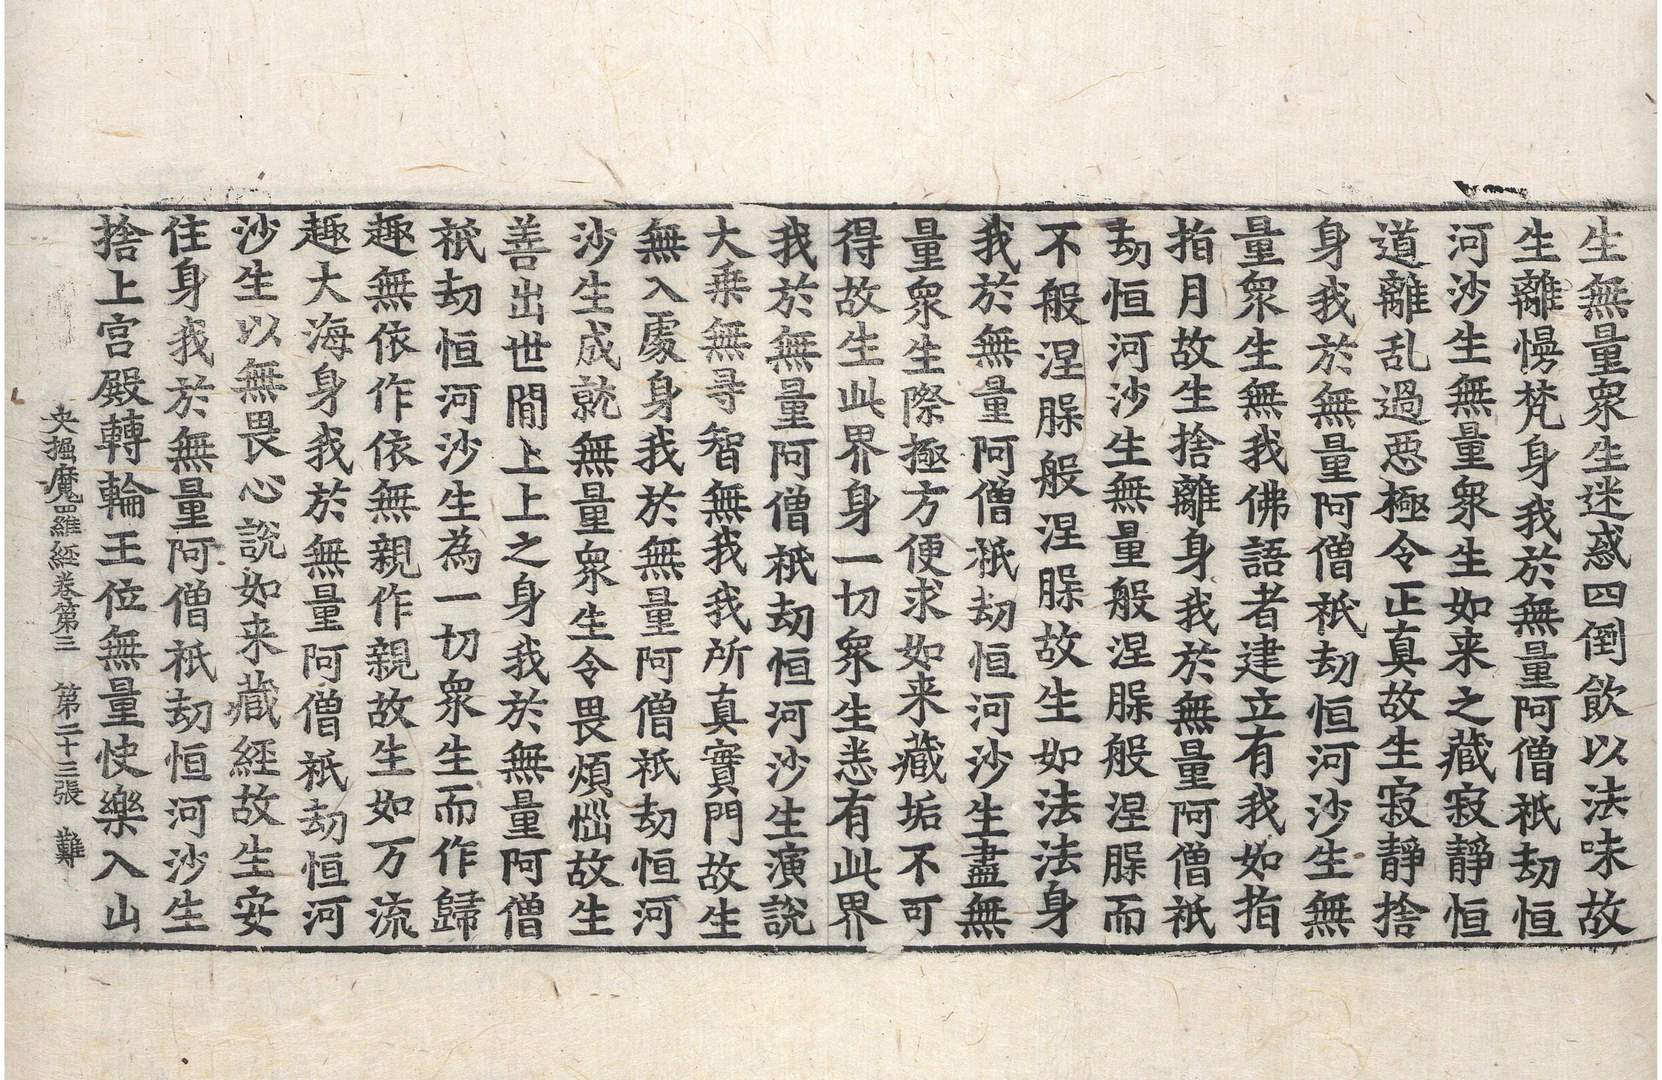 生無量衆生迷惑四倒飲以法味故
生離慢梵身我於無量阿僧祇劫恒
河沙生無量衆生如来之藏寂靜恒
道離乱過惡極令正真故生寂靜捨
身我於無量阿僧祇劫恒河沙生無
量衆生無我佛語者建立有我如指
指月故生捨離身我於無量阿僧祇
劫恒河沙生無量般涅脲般涅脲而
不般涅脲般涅脲故生如法法身
我於無量阿僧祇劫恒河沙生盡無
量衆生際極方便求如来藏垢不可
得故生此界身一切衆生悉有此界
我於無量阿僧祇劫恒河沙生演說
大乗無㝵智無我我所真實門故生
無入處身我於無量阿僧祇劫恒河
沙生成就無量衆生令畏煩惱故生
善出世間上上之身我於無量阿僧
祇劫恒河沙生為一切衆生而作歸
趣無依作依無親作親故生如万流
趣大海身我於無量阿僧祇劫恒河
沙生以無畏心說如来藏經故生安
住身我於無量阿僧祇劫恒河沙生
捨上宮殿轉輪王位無量快樂入山
央掘魔羅經卷第三 第二十三張 難